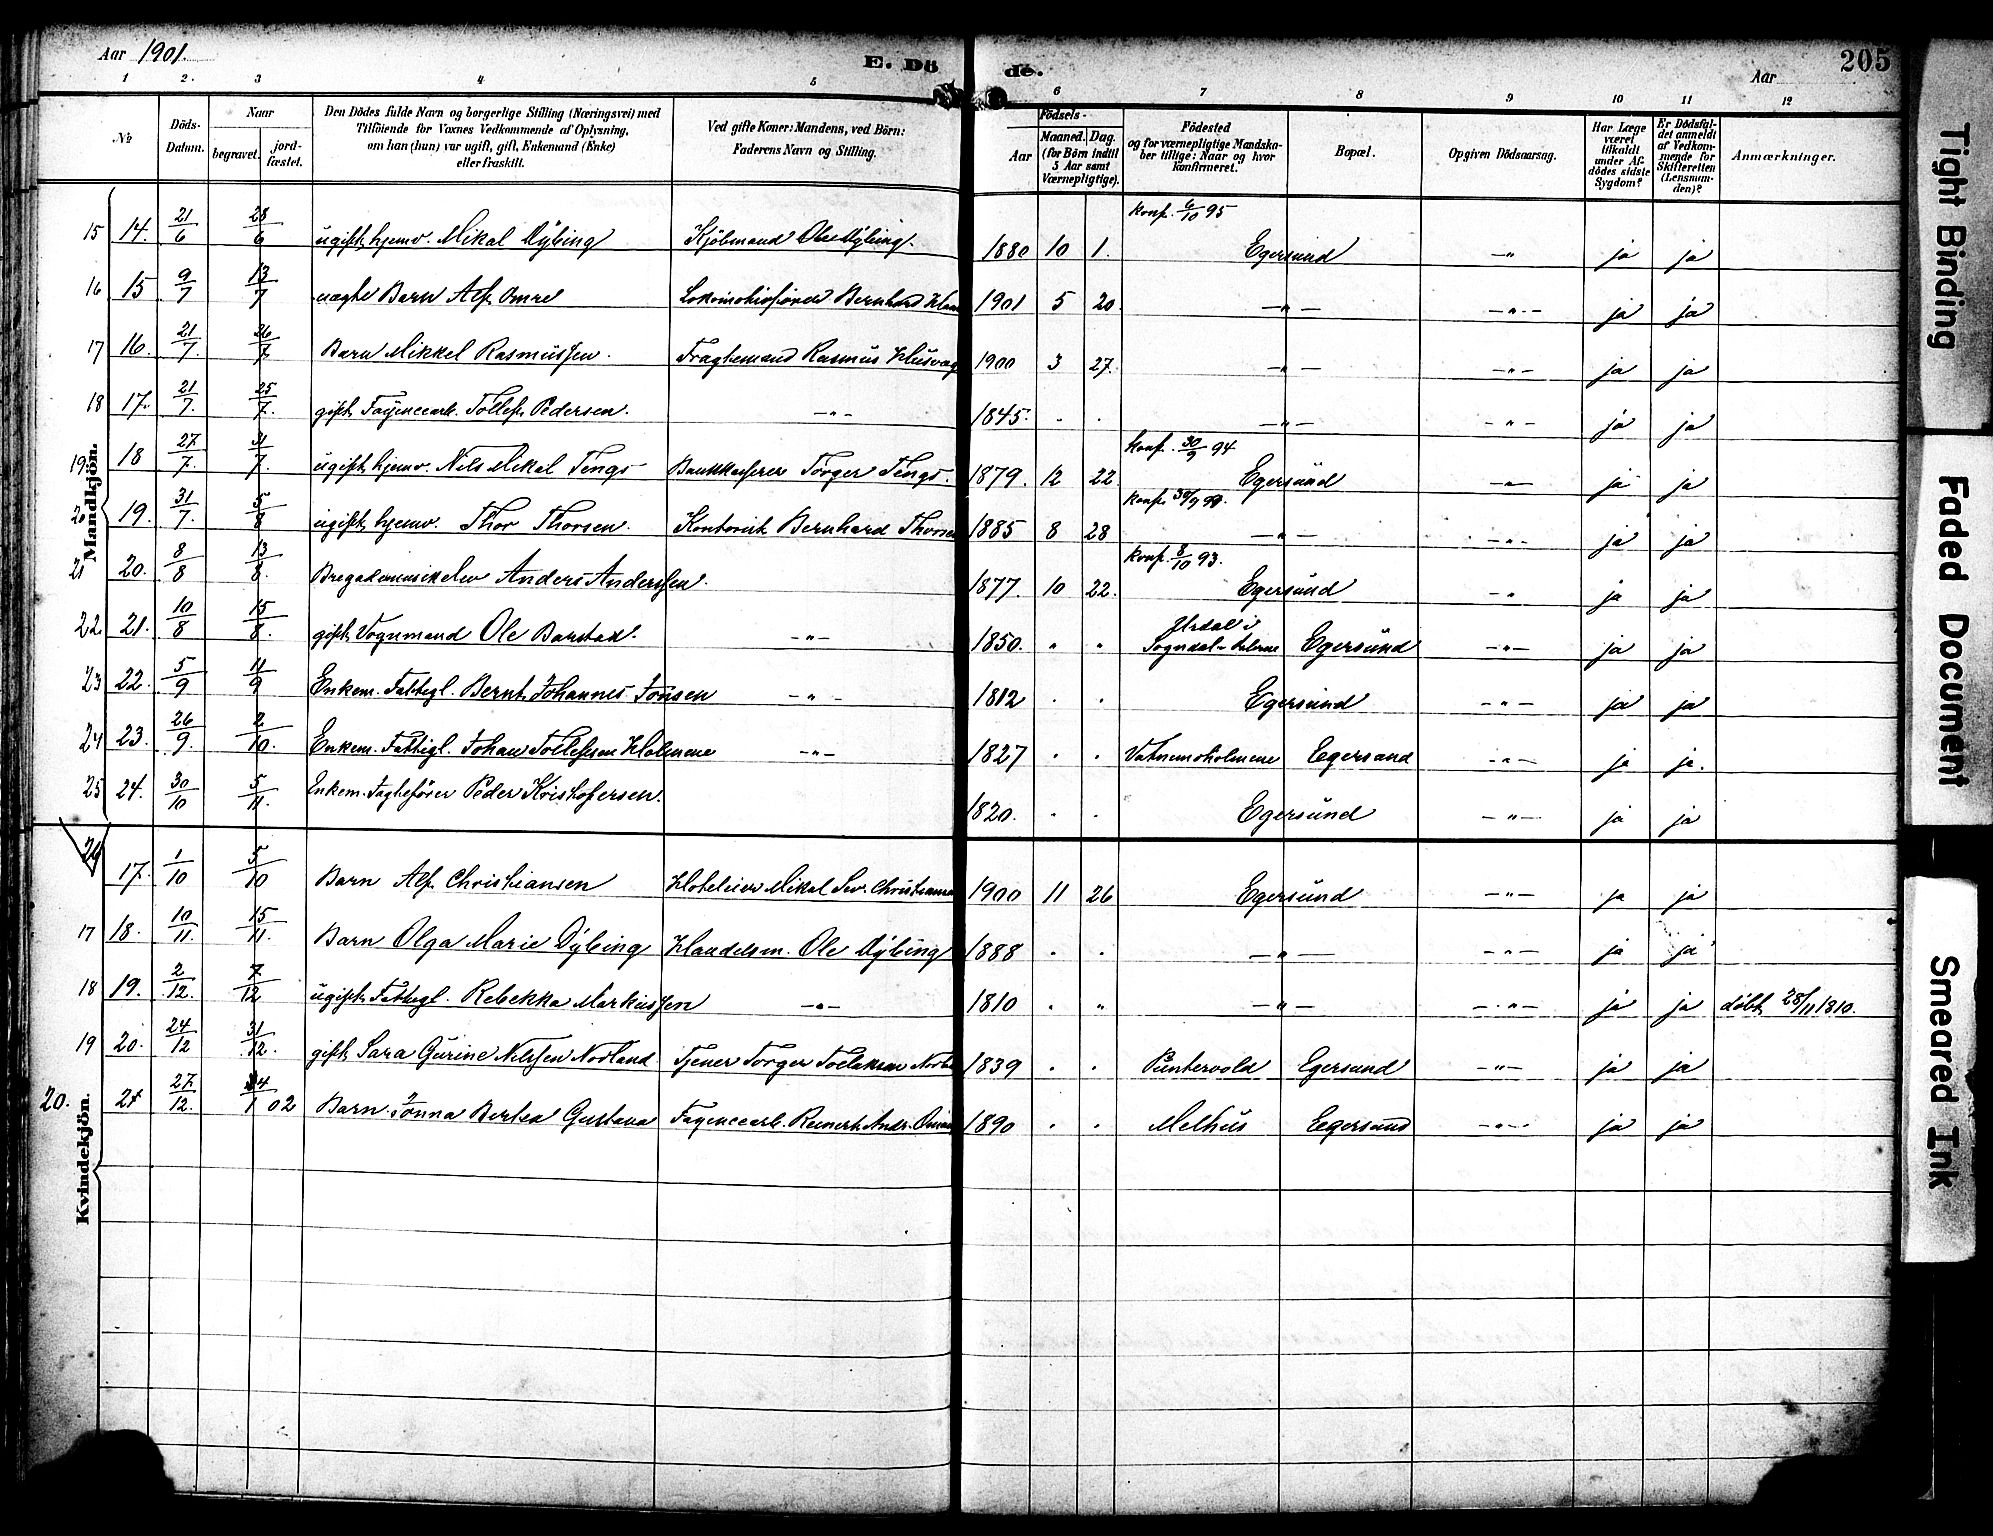 Aar 1901.
E. Döde.
Aar
205
1 2. 3 4 5 6 7 8 9 10 11 12
№
Döds-Datum.
Naar
begravet.
jord-fæstet.
Den Dödes fulde Navn og borgerlige Stilling (Næringsvei) med
Tilföiende for Voxnes Vedkommende af Oplysning,
om han (hun) var ugift, gift, Enkemand (Enke)
eller fraskilt.
Ved gifte Koner: Mandens, ved Börn:
Faderens Navn og Stilling.
Födsels-
Aar
Maaned. Dag.
(for Börn indtil
5 Aar samt
Værnepligtige).
Födested
og for værnepligtige Mandska-
ber tillige: Naar og hvor
konfirmeret.
Bopæl.
Opgiven Dödsaarsag.
Har Læge
været
tilkaldt
under Af-
dödes sidste
Sygdom?
Er Dödsfal-
det anmeldt
af Vedkom-
mende for
Skifteretten
(Lensman-
den)?
Anmærkninger.
Mandkjön.
15 14. 21/6 28/6 ugift hjemv. Mikal Dybing Kjöbmand Ole Dybing. 1880 10 1. konf. 6/10 95 Egersund -"- ja ja
16 15 9/7 13/7 uægte Barn Alf Omre Lokomotivförer Bernhard 1901 5 20. -"- -"- ja ja
17 16. 21/7. 26/7 Barn Mikkel Rasmussen. Fragtemand Rasmus 1900 3 27. -"- -"- ja ja
18 17. 21/7. 25/7. gift Fayencearb. Tollef Pedersen. -"- 1845. . . -"- -"- ja ja
19 18 27/7. 31/7. ugift hjemv. Nils Mikal Tengs Bankkasserer Torger Tengs. 1879. 12 22. konf. 30/9 94 Egersund -"- ja ja
20 19. 31/7. 5/8 ugift hjemv. Thor Thorsen. Kontorist Bernhard Thorsen 1885 8 28 konf. 30/9 99. -"- -"- ja ja
21 20. 8/8 13/8. Anders Anderssen. 1877. 10 22. konf. 8/10 93. Egersund " ja ja
22. 21. 10/8 15/8. gift Vognmand Ole Barstad. -"- 1850. " " i Sogndal Egersund -"- ja ja
23 22. 5/9 11/9 Enkem. Fattigl. Bernt Johannes Jonsen -"- 1812 . . Egersund -"- ja ja
24 23. 26/9. 2/10. Enkem. Fattigl. Johan Tollefsen Holmene -"- 1827 . . Vatnemoholmene Egersund -"- ja ja.
25 24. 30/10 5/11. Enkem. Peder Kristofersen. 1820. . . Egersund -"- ja ja
Kvindekjön.
17. 1/10 5/10 Barn Alf Christiansen Hoteleier Mikal Sev. 1900 11 26 Egersund -"- ja ja
17 18. 10/11. 15/11. Barn Olga Marie Dybing Handelsm. Ole Dybing 1888 . . -"- -"- ja ja
18 19. 2/12. 7/12 ugift Fattigl. Rebekka Markussen -"- 1810 . " -"- -"- ja ja döbt 28/11 1810.
19 20. 24/12 31/12. gift Sara Gurine Nilssen Nodland Tjener Torger 1839 . . Puntervold Egersund -"- ja ja
20. 21 27/12. 4/1 02 Barn Jonna Bertea Gustava Fayencearb. Reinert Andr. 1890 . . Melhus Egersund -"- ja ja
Tight Binding
Faded Document
Smeared Ink